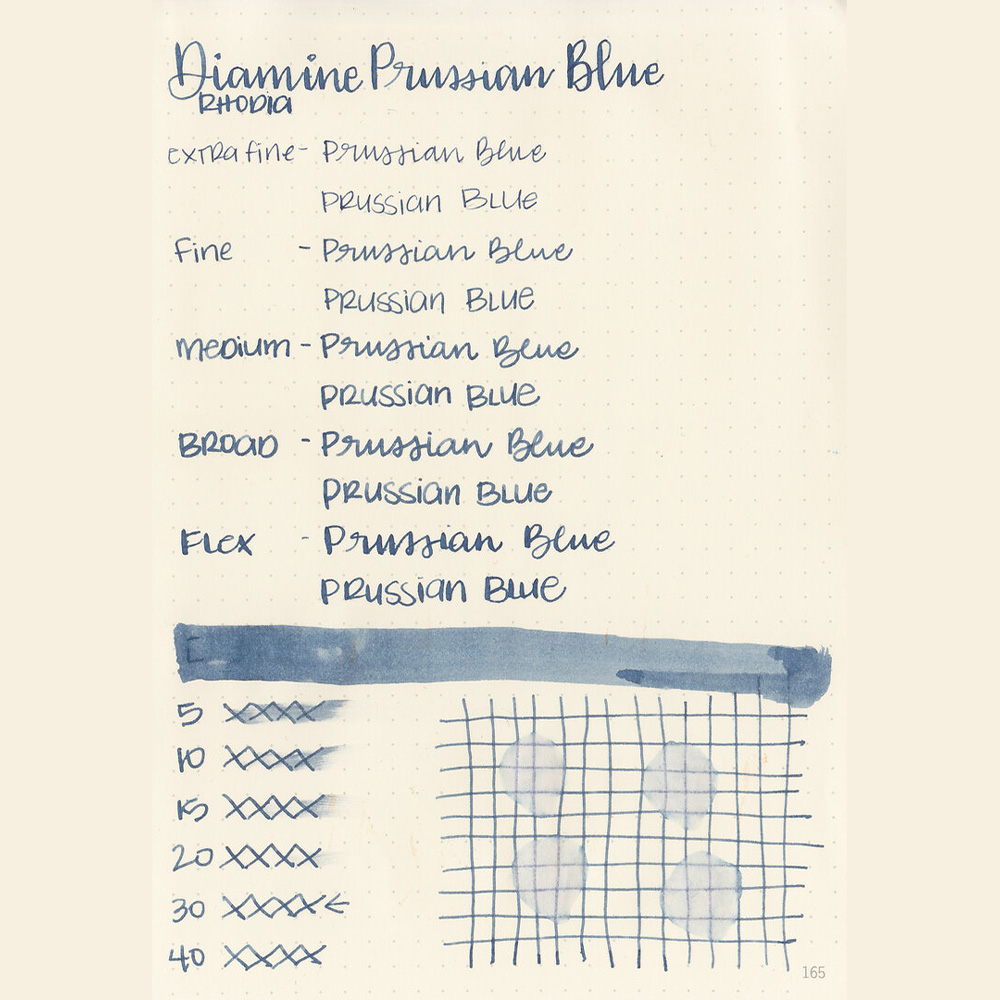 Diamine Prussian Blue
RHODIA
extra fine - Prussian Blue
PRUSSIAN BLUE
Fine - Prussian Blue
PRUSSIAN BLUE
Medium - Prussian Blue
PRUSSIAN BLUE
BROAD - Prussian Blue
PRUSSIAN BLUE
Flex - Prussian Blue
PRUSSIAN BLUE
5 XXXX
10 XXXX
15 XXXX
20 XXXX
30 XXXX ←
40 XXXX
165